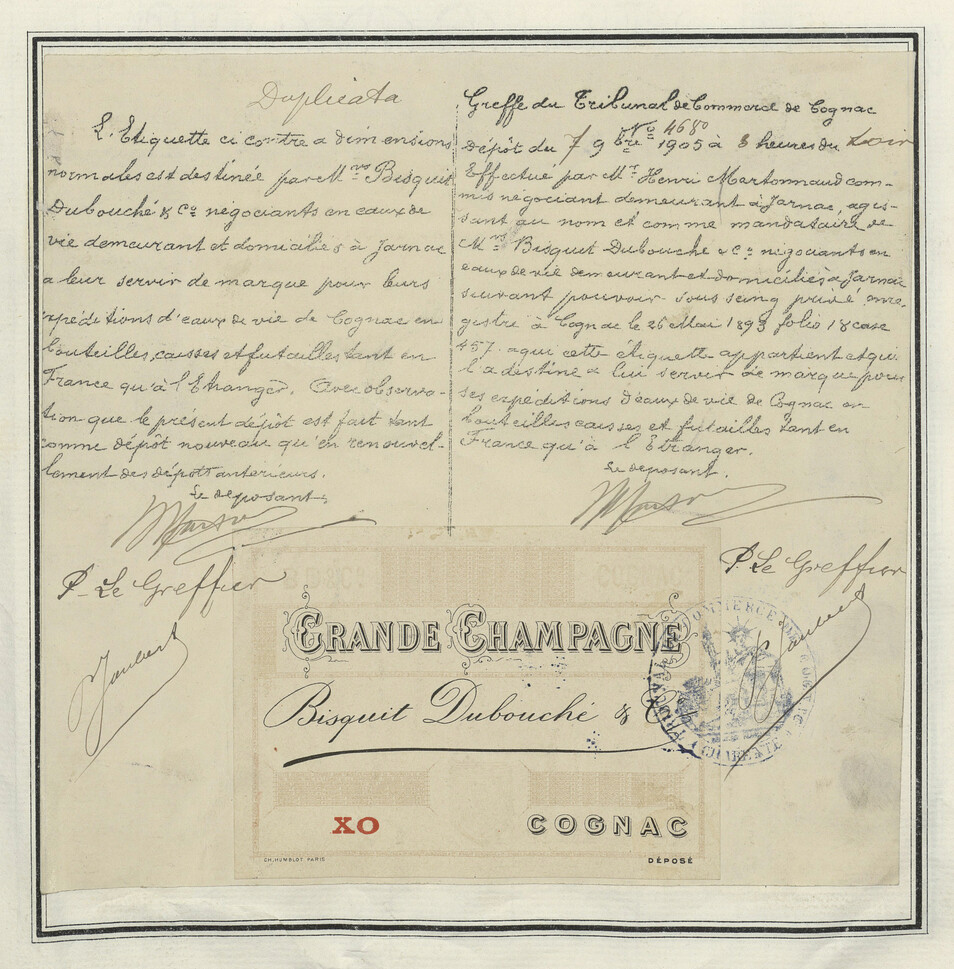 Duplicata
L'Etiquette ci contre a dimensions
normales est destinée par Mrs Bisquit
Dubouché & Co négociants en eaux de
vie demeurant et domiciliés à Jarnac
a leur servir de marque pour leurs
expéditions d'eaux de vie de Cognac en
bouteilles, caisses et futailles tant en
France qu'à l'Etranger. Avec observa-
tion que le présent dépôt est fait tant
comme dépôt nouveau qu'en renouvel-
lement des dépôts anterieurs.
Le deposant,
P. Le Greffier
Jaubert
Greffe du Tribunal de Commerce de Cognac
No 4680
Dépôt du 7 9bre 1905 à 3 heures du soir
Effectué par Mr Henri Martonnaud com-
mis négociant demeurant à Jarnac, agis-
sant au nom et comme mandataire de
Mrs Bisquit Dubouché & Co négociants en
eaux de vie demeurant et domiciliés à Jarnac
suivant pouvoir sous seing privé, enre
gistré à Cognac le 26 Mai 1893 folio 18 case
457. a qui cette étiquette appartient et qui
l'a destine a lui servir de marque pour
ses expeditions d'eaux de vie de Cognac en
bouteilles caisses et futailles tant en
France qu'à l'Etranger.
Le deposant.
P. Le Greffier
Jaubert
GRANDE CHAMPAGNE
Bisquit Dubouché & Co
XO
COGNAC
CH. HUMBLOT PARIS
DÉPOSÉ
TRIBUNAL DE COMMERCE DE COGNAC
(CHARENTE)